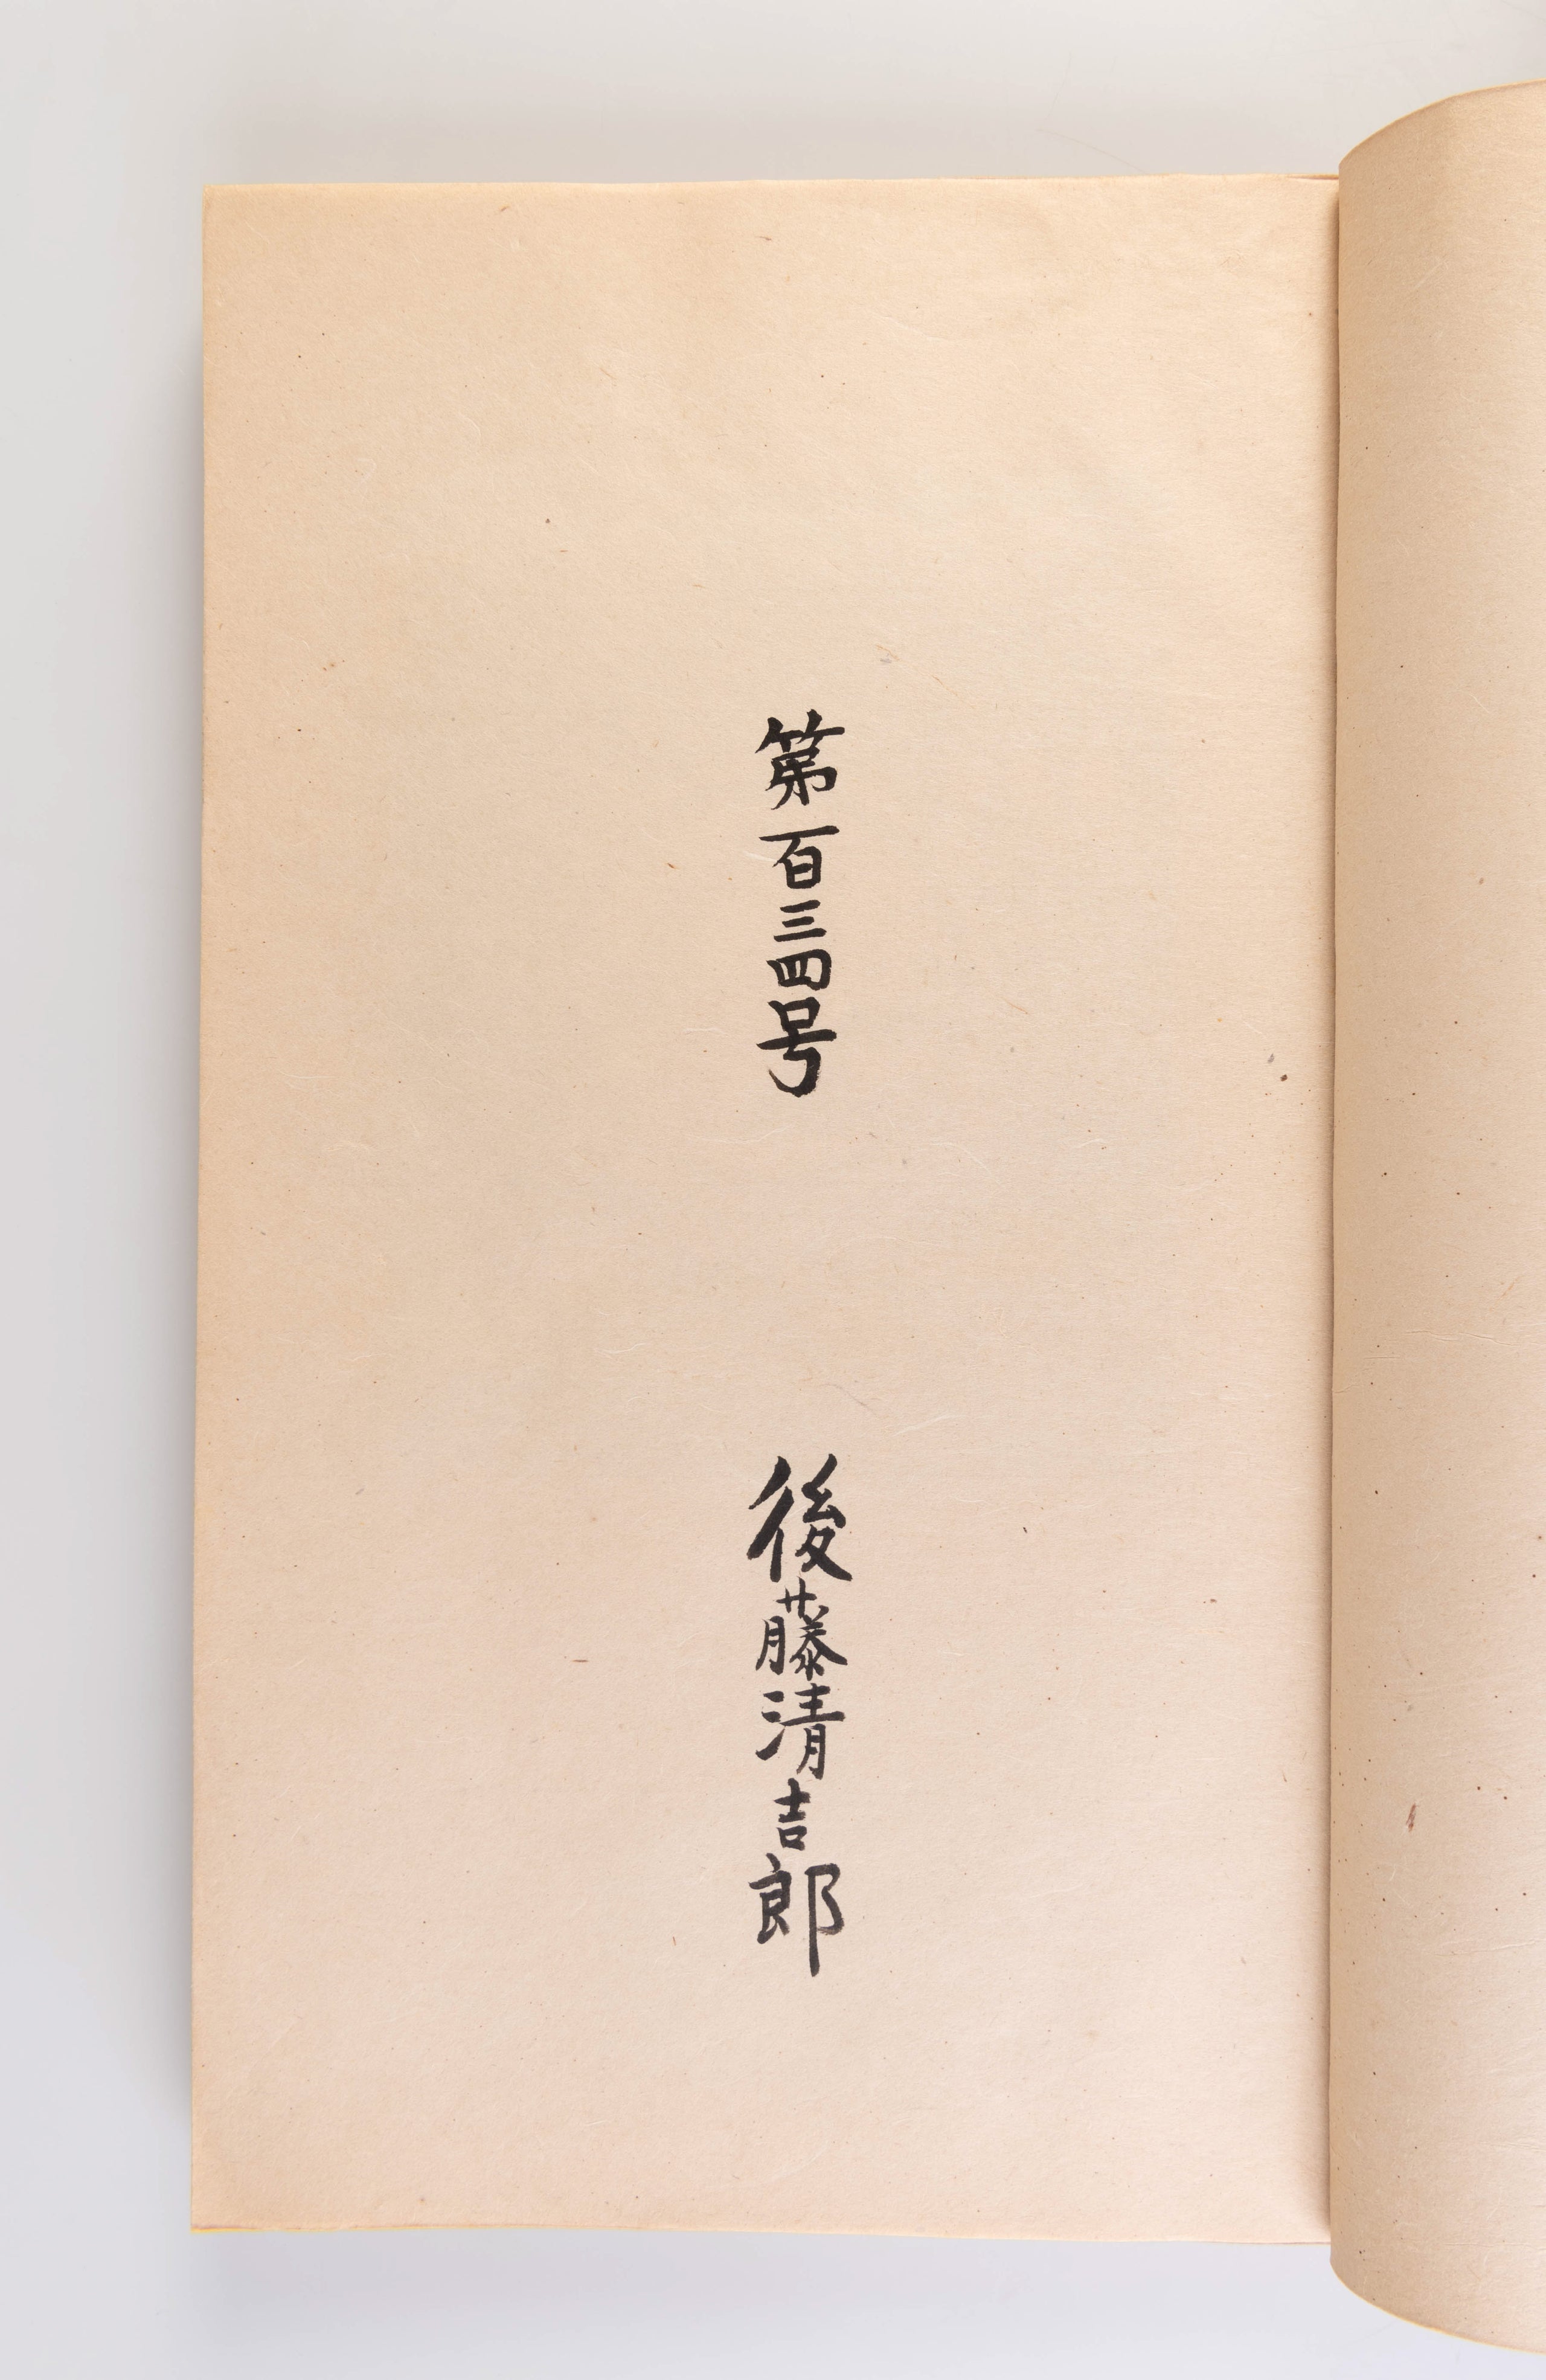 第百三四号
後藤清吉郎